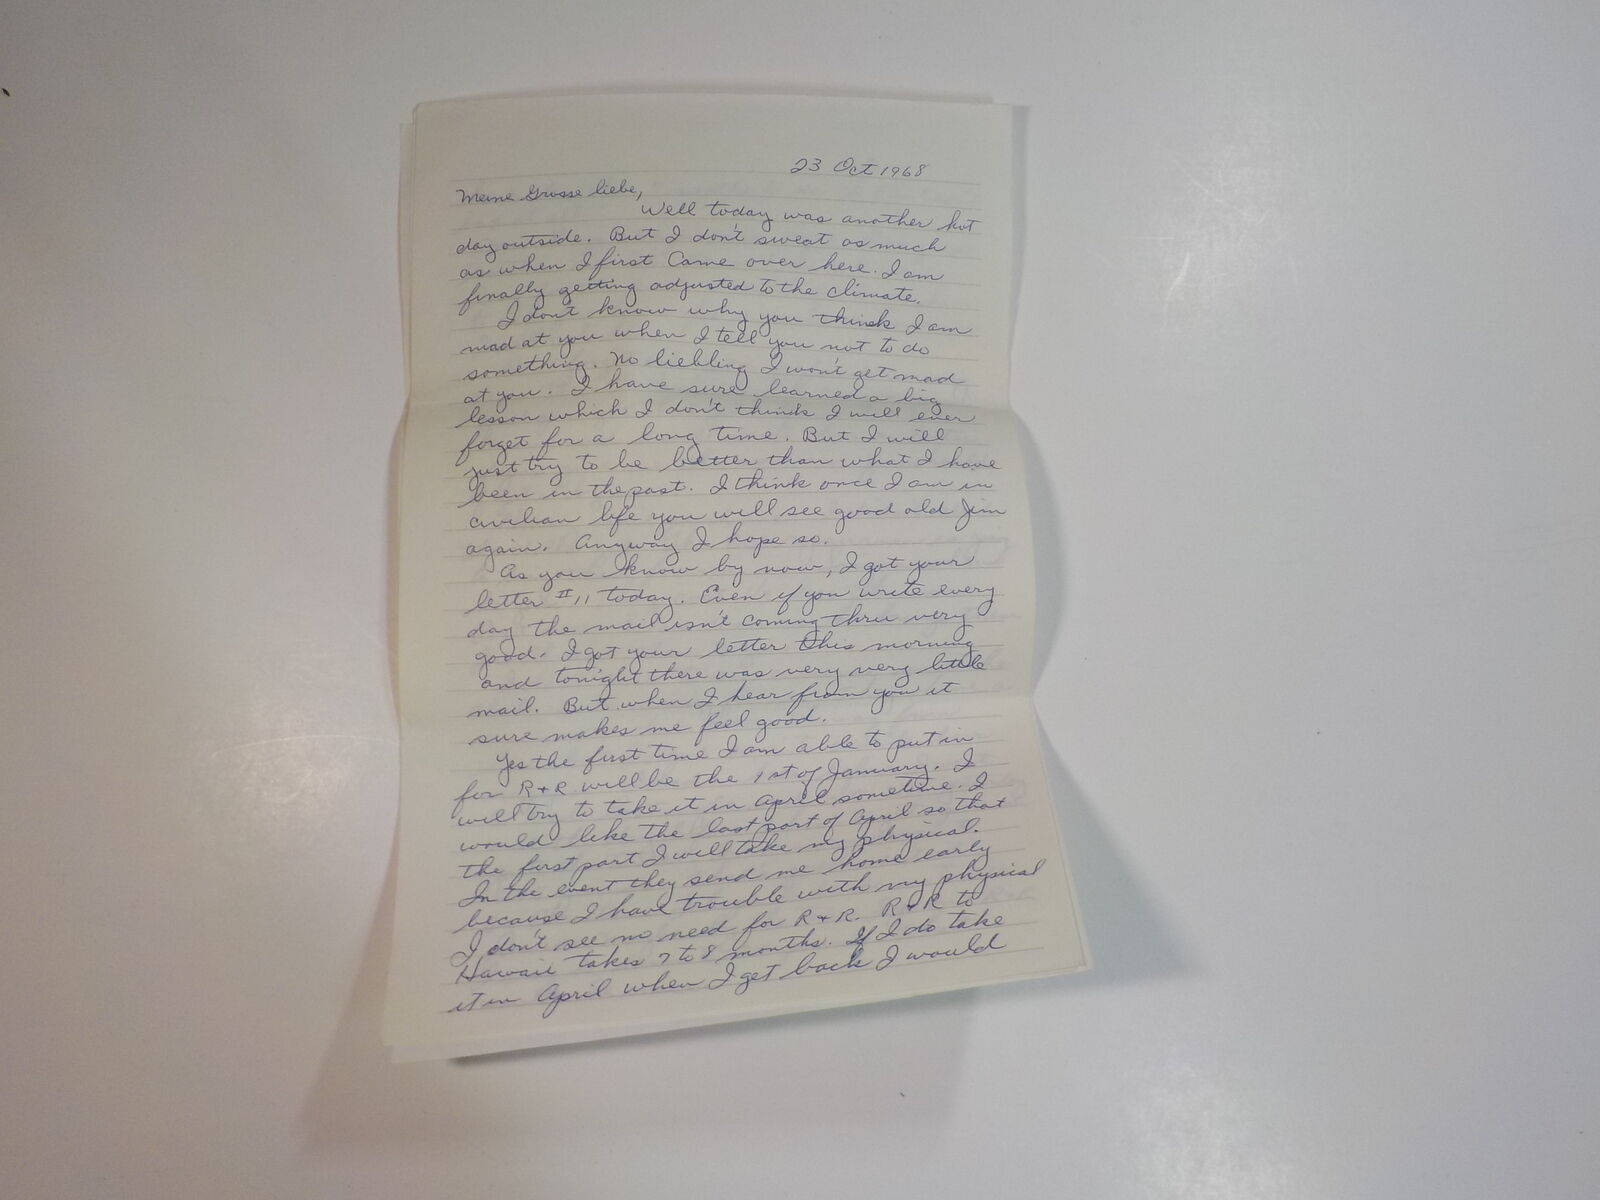 23 Oct 1968
Meine Grosse liebe,
Well today was another hot
day outside. But I don't sweat as much
as when I first Came over here. I am
finally getting adjusted to the climate.
I don't know why you think I am
mad at you when I tell you not to do
something. No liebling I won't get mad
at you. I have sure learned a big
lesson which I don't think I will ever
forget for a long time. But I will
just try to be better than what I have
been in the past. I think once I am in
civilian life you will see good old Jim
again. Anyway I hope so.
As you know by now, I got your
letter # 11 today. Even if you write every
day the mail isn't coming thru very
good. I got your letter this morning
and tonight there was very very little
mail. But when I hear from you it
sure makes me feel good.
Yes the first time I am able to put in
for R+R will be the 1st of January. I
will try to take it in April sometime. I
would like the last part of April so that
the first part I will take my physical.
In the event they send me home early
because I have trouble with my physical
I don't see no need for R+R. R+R to
Hawaii takes 7 to 8 months. If I do take
it in April when I get back I would